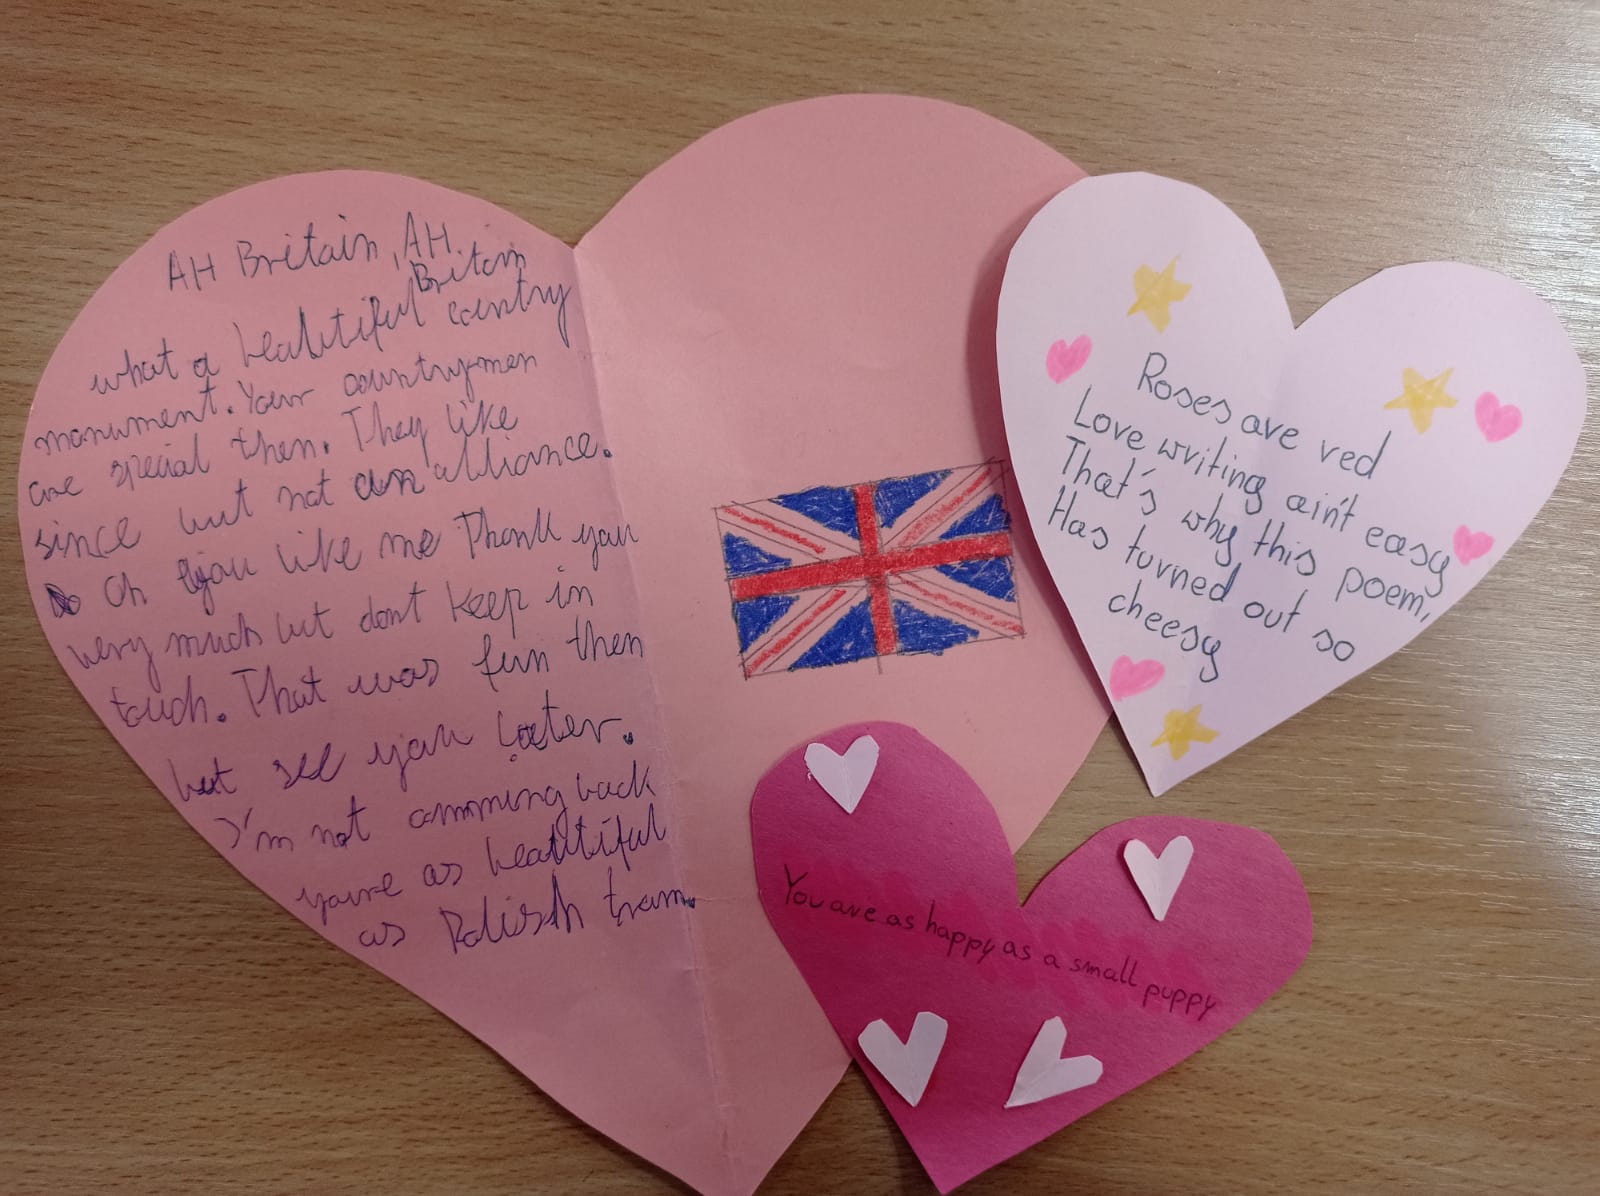 AH Britain, AH
Britain
what a beautiful country
monument. Your countrymen
are special then. They like
since but not an alliance.
Oh you like me Thank you
very much but dont keep in
touch. That was fun then
but see you later.
I'm not comming back
youre as beautiful
as Polish tram.
Roses are red
Love writing ain't easy
That's why this poem,
Has turned out so
cheesy
You are as happy as a small puppy